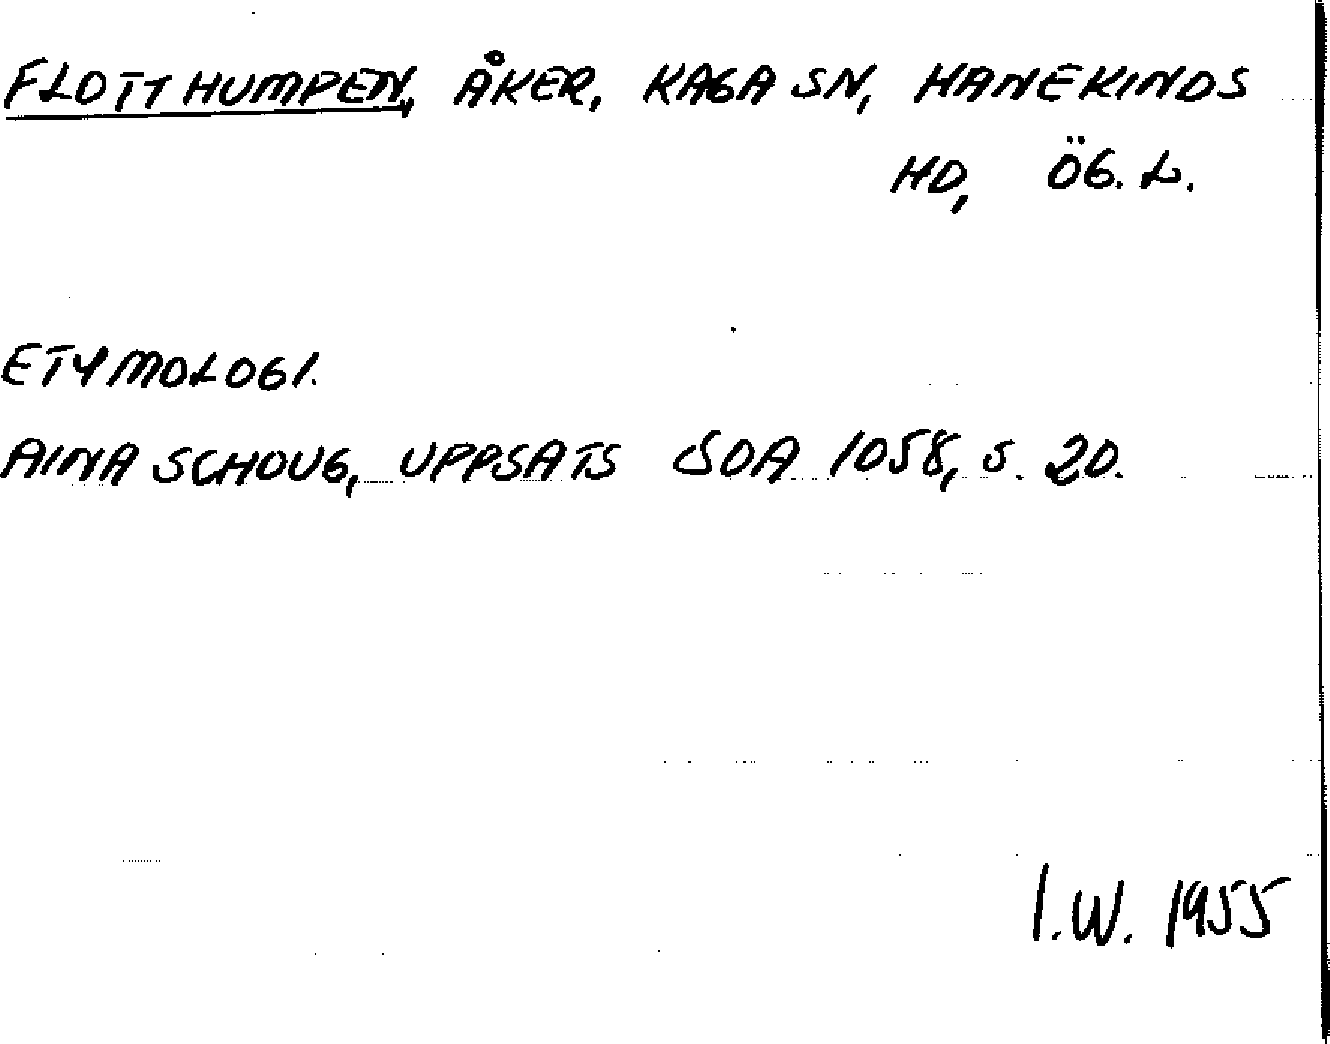 FLOTTHUMPEN, ÅKER, KAGA SN, HANEKINDS
HD, ÖG. L.
ETYMOLOGI.
AINA SCHOUG, UPPSATS SOA 1058, S. 20.
I.W. 1955